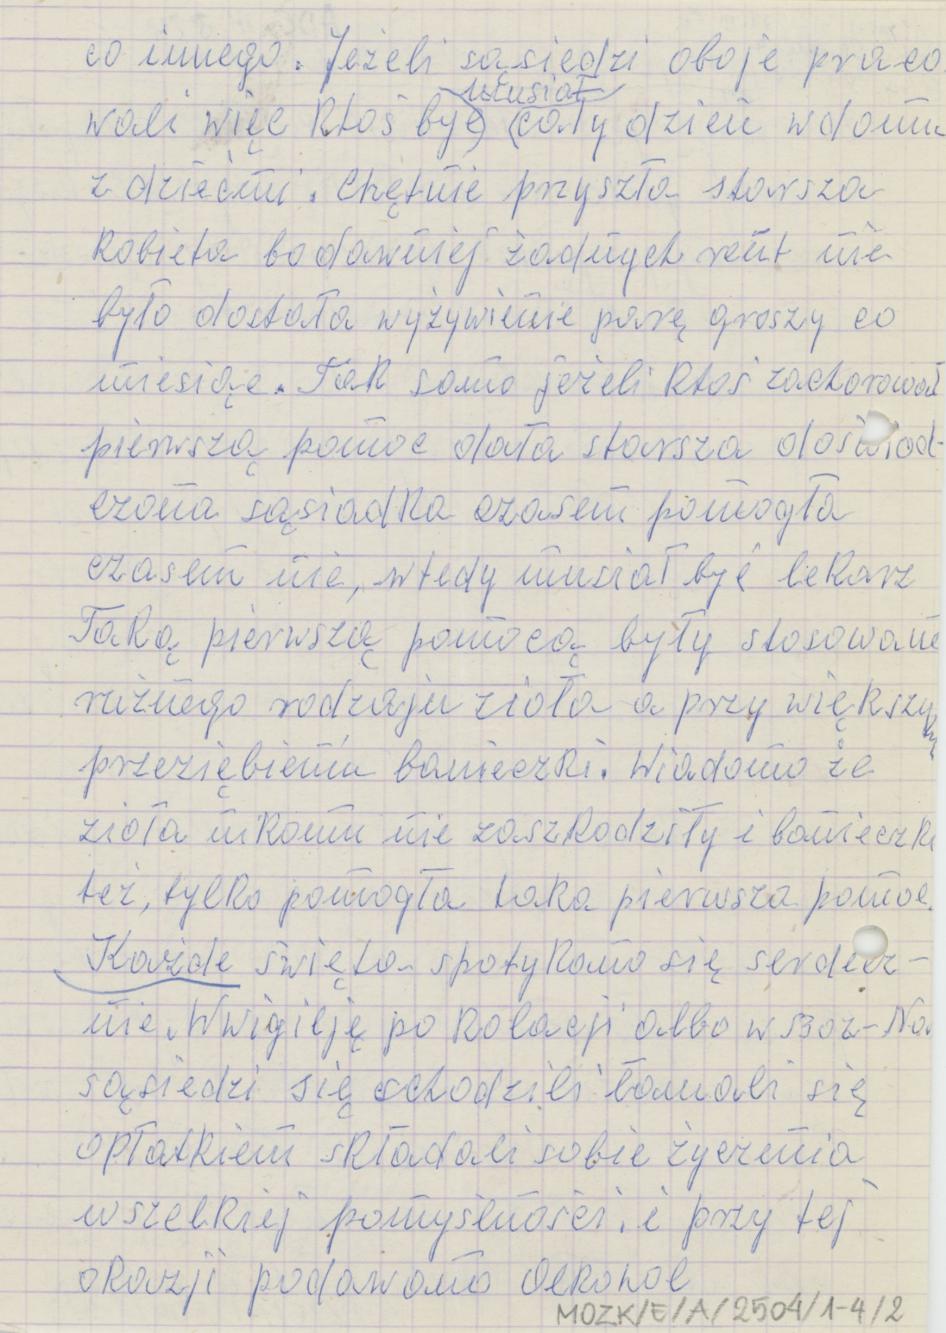 co innego. Jeżeli sąsiedzi oboje praco
musiał
wali więc Ktoś być cały dzień w domu
z dziećmi. Chętnie przyszła starsza
Kobieta bo dawniej żadnych rent nie
było dostała wyżywienie parę groszy co
miesiąc. Tak samo jeżeli Ktoś zachorował
pierwszą pomoc dała starsza doświad-
czona sąsiadka czasem pomogła
czasem nie, wtedy musiał być lekarz
Taką pierwszą pomocą były stosowane
różnego rodzaju zioła a przy większym
przeziębieniu banieczki. Wiadomo że
zioła nikomu nie zaszkodziły i banieczki
też, tylko pomogła taka pierwsza pomoc.
Każde święta spotykano się serdecz-
nie. W wigilję po Kolacji albo w Boż-Na.
sąsiedzi się schodzili łamali się
opłatkiem składali sobie życzenia
wszelkiej pomyślności. i przy tej
okazji podawano alkohol
MOZK/E/A/2504/1-4/2